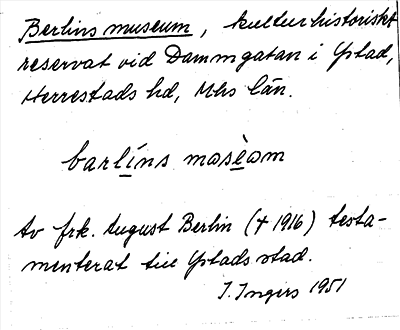 Berlins museum, kulturhistoriskt
reservat vid Dammgatan i Ystad,
Herrestads hd, Mhs län.
barlíns mosèom
Av frk. August Berlin (+ 1916) testa-
menterat till Ystads stad.
I. Ingers 1951